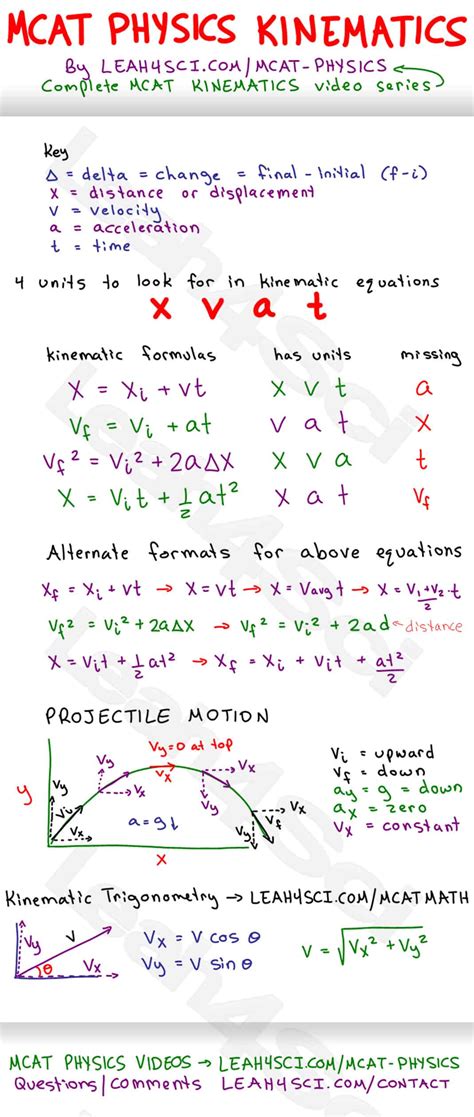 MCAT PHYSICS KINEMATICS
By LEAH4SCI.COM/MCAT-PHYSICS
Complete MCAT KINEMATICS video series
Key
Δ = delta = change = final - Initial (f-i)
x = distance or displacement
v = velocity
a = acceleration
t = time
4 units to look for in kinematic equations
x v a t
kinematic formulas has units missing
X = Xi + vt X v t a
Vf = Vi + at v a t X
Vf² = Vi² + 2aΔX X v a t
X = Vit + ½at² X a t Vf
Alternate formats for above equations
Xf = Xi + vt → X = vt → X = Vavgt → X = V₁+V₂/2 · t
Vf² = Vi² + 2aΔX → Vf² = Vi² + 2ad ← distance
X = Vit + ½at² → Xf = Xi + Vit + at²/2
PROJECTILE MOTION
Vy=0 at top
Vy Vx Vx
Vy Vi Vx
Vy Vx Vf
Vy
y
a=g↓
x
Vi = upward
Vf = down
ay = g = down
ax = zero
Vx = constant
Kinematic Trigonometry → LEAH4SCI.COM/MCATMATH
Vy V Vx θ
Vx = V cos θ
Vy = V sin θ
V = √Vx² + Vy²
MCAT PHYSICS VIDEOS → LEAH4SCI.COM/MCAT-PHYSICS
Questions/Comments LEAH4SCI.COM/CONTACT
Leah4Sci